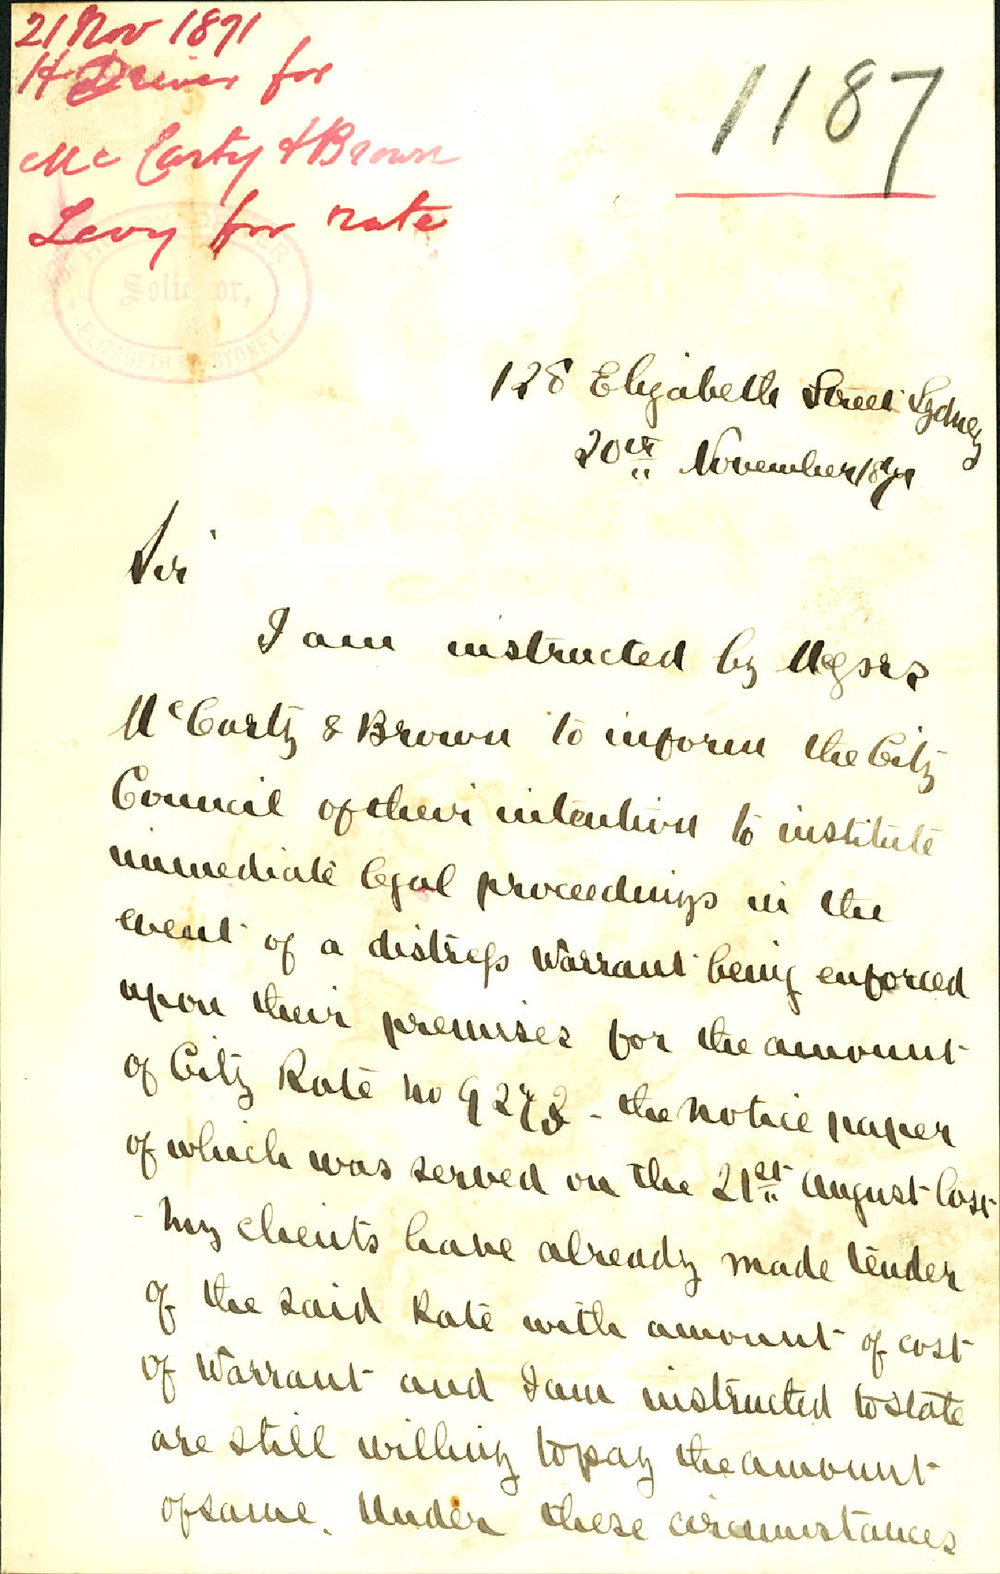 21 Nov 1871
H Driver for
Mc Carty & Brown
Levy for rate
1187
HENRY DRIVER
Solicitor,
ELIZABETH ST SYDNEY.
128 Elizabeth Street Sydney
20th November 1871
Sir
I am instructed by Messrs
McCarty & Brown to inform the City
Council of their intention to institute
immediate legal proceedings in the
event of a distress Warrant being enforced
upon their premises for the amount
of City Rate no - the notice paper
of which was served on the 21st August last
- My clients have already made tender
of the said Rate with amount of cost
of Warrant and I am instructed to state
are still willing to pay the amount
of same. Under these circumstances